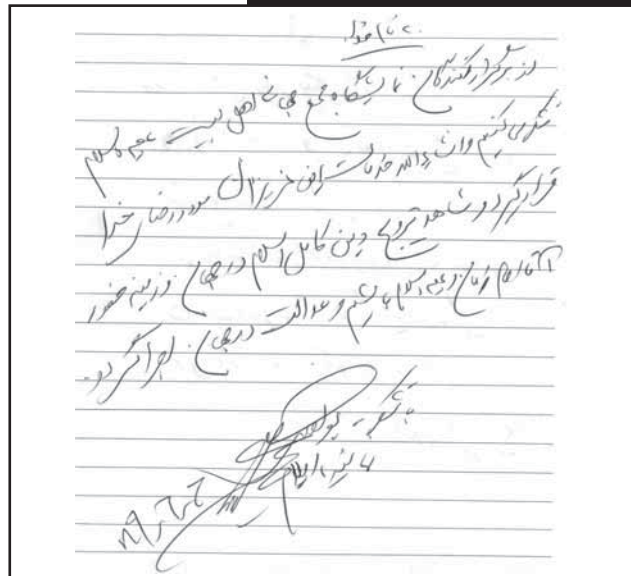 به نام خدا
از برگزارکنندگان نمایشگاه مجمع جهانی اهل بیت علیهم السلام
تشکر می کنیم و انشاءالله خدمات این عزیزان مورد رضای خدا
قرار گیرد و شاهد ترویج دین کامل اسلام در جهان و زمینه حضور
آقا امام زمان علیه السلام باشیم و عدالت در جهان اجرا گردد.
با تشکر
نماینده ایلام